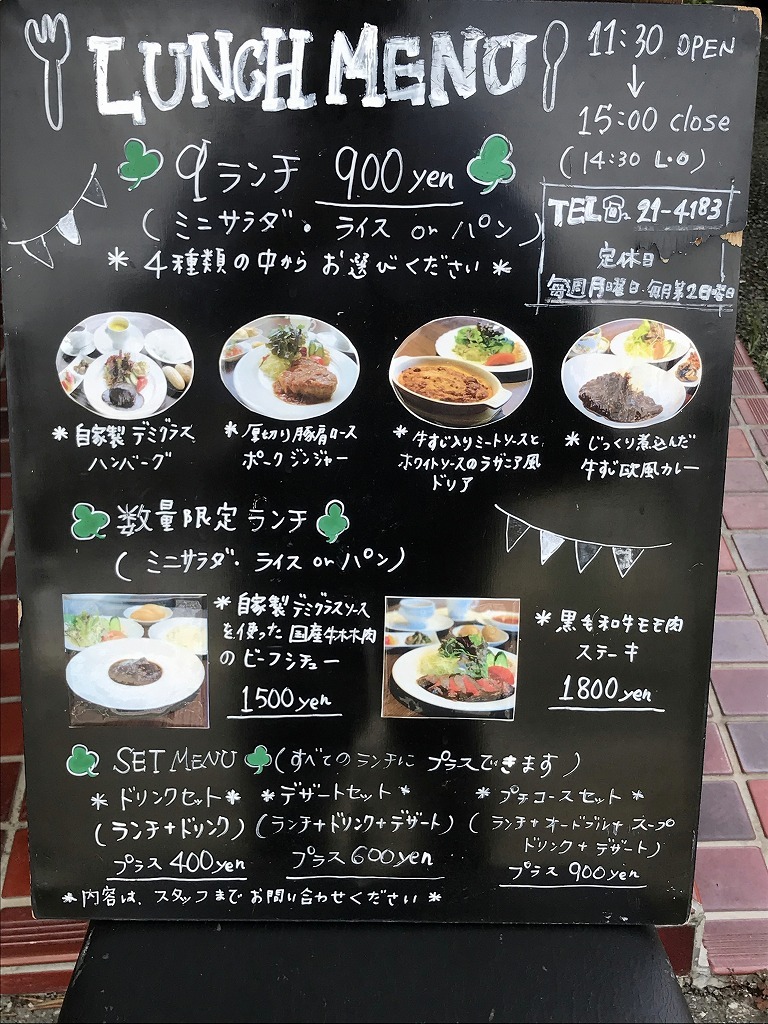 LUNCH MENU
11:30 OPEN
↓
15:00 close
(14:30 L.O)
TEL☏ 21-4183
定休日
毎週月曜日・毎月第2日曜日
9ランチ 900yen
(ミニサラダ・ライス or パン)
* 4種類の中から お選びください *
* 自家製 デミグラス
ハンバーグ
* 厚切り豚肩ロース
ポークジンジャー
* 牛すじ入りミートソースと
ホワイトソースのラザニア風
ドリア
* じっくり煮込んだ
牛すじ欧風カレー
数量限定 ランチ
(ミニサラダ・ライス or パン)
* 自家製 デミグラスソース
を使った 国産牛ホホ肉
の ビーフシチュー
1500yen
* 黒毛和牛モモ肉
ステーキ
1800yen
SET MENU (すべてのランチに プラスできます)
* ドリンクセット *
(ランチ+ドリンク)
プラス 400yen
* デザートセット *
(ランチ+ドリンク+デザート)
プラス 600yen
* プチコースセット *
(ランチ+オードブル+スープ
ドリンク+デザート)
プラス 900yen
* 内容は、スタッフまで お問い合わせください *